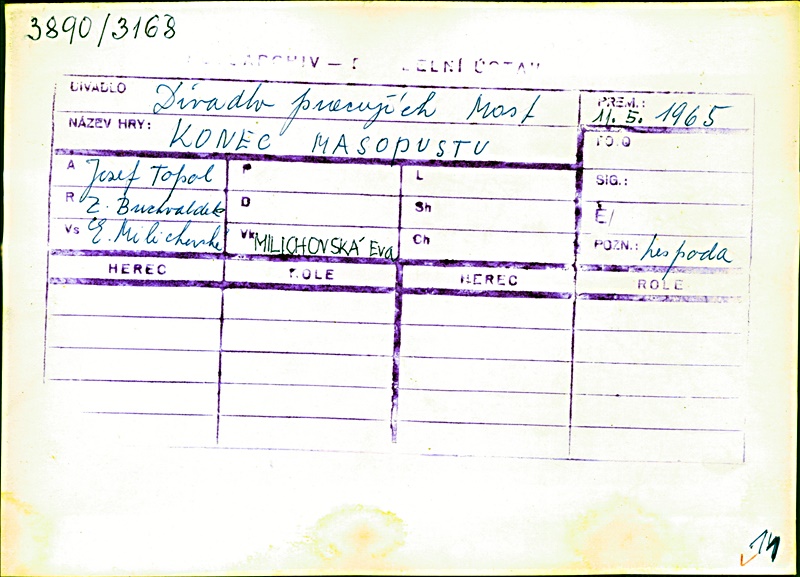 3890/3168
DIVADLO Divadlo pracujících Most PREM.: 11. 5. 1965
NÁZEV HRY: KONEC MASOPUSTU
A Josef Topol P L SIG.:
R Z. Buchvaldek D Sh
Vs E. Milichovská Vk MILICHOVSKÁ Eva Ch POZN.: hospoda
HEREC ROLE HEREC ROLE
14